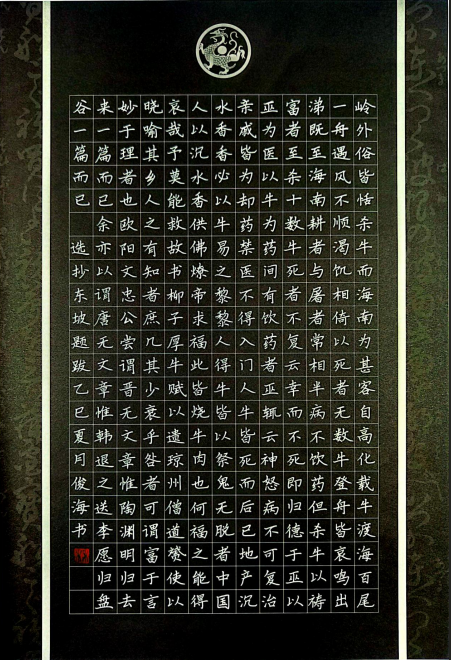 岭外俗皆恬杀牛而海南为甚客自高化载牛渡海百尾
一舟遇风不顺渴饥相倚以死者无数牛登舟皆哀鸣出
涕既至海南耕者与屠者常相半病不饮药但杀牛以祷
富者至杀十数牛死者不复云幸而不死即归德于巫以
巫为医以牛为药间有饮药者巫辄云神怒病不可复治
亲戚皆为却药禁医不得入门人牛皆死而后已地产沉
水香香必以牛易之黎黎人得牛皆以祭鬼无脱者中国
人以沉水香供佛燎帝求福此皆烧牛肉也何福之能得
哀哉予莫能救故书柳子厚牛赋以遗琼州僧道赟使以
晓喻其乡人之有知者庶几其少衰乎昝者可谓富于言
妙于理者也欧阳文忠公尝谓晋无文章惟陶渊明归去
来一篇而已余亦以谓唐无文章惟韩退之送李愿归盘
谷一篇而已 选抄东坡题跋乙巳夏月俊海书